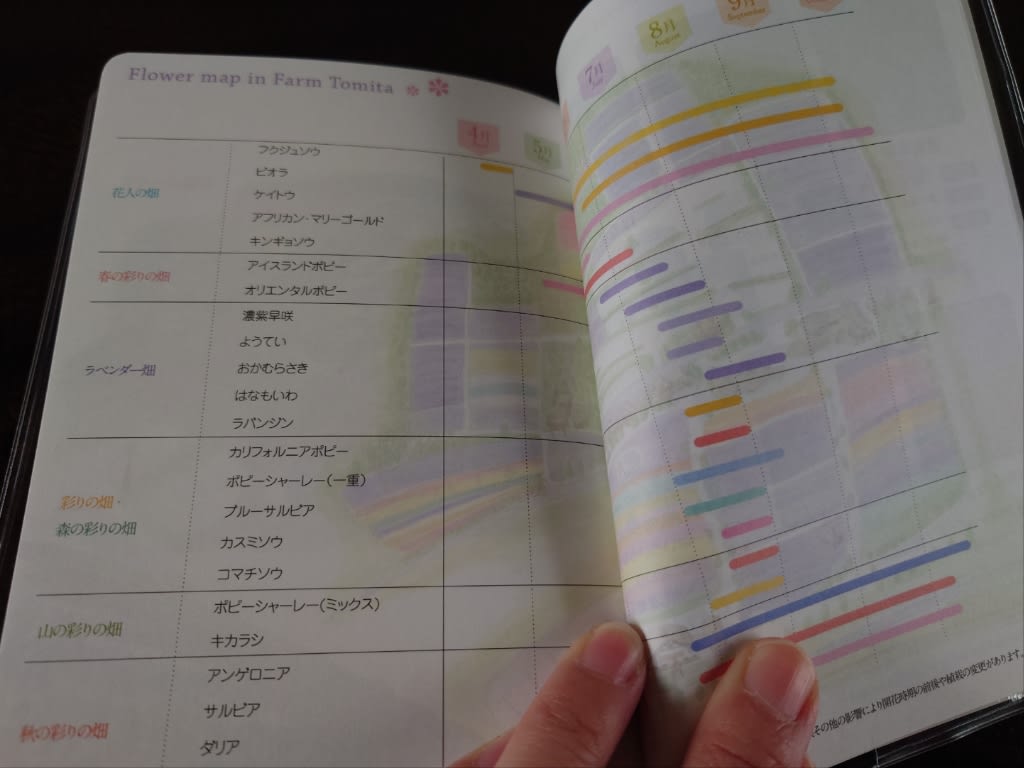 Flower map in Farm Tomita
4月
5月
7月
8月
August
9月
September
花人の畑
フクジュソウ
ビオラ
ケイトウ
アフリカン・マリーゴールド
キンギョソウ
春の彩りの畑
アイスランドポピー
オリエンタルポピー
ラベンダー畑
濃紫早咲
ようてい
おかむらさき
はなもいわ
ラバンジン
彩りの畑・
森の彩りの畑
カリフォルニアポピー
ポピーシャーレー(一重)
ブルーサルビア
カスミソウ
コマチソウ
山の彩りの畑
ポピーシャーレー(ミックス)
キカラシ
秋の彩りの畑
アンゲロニア
サルビア
ダリア
その他の影響により開花時期の前後や植栽の変更があります。